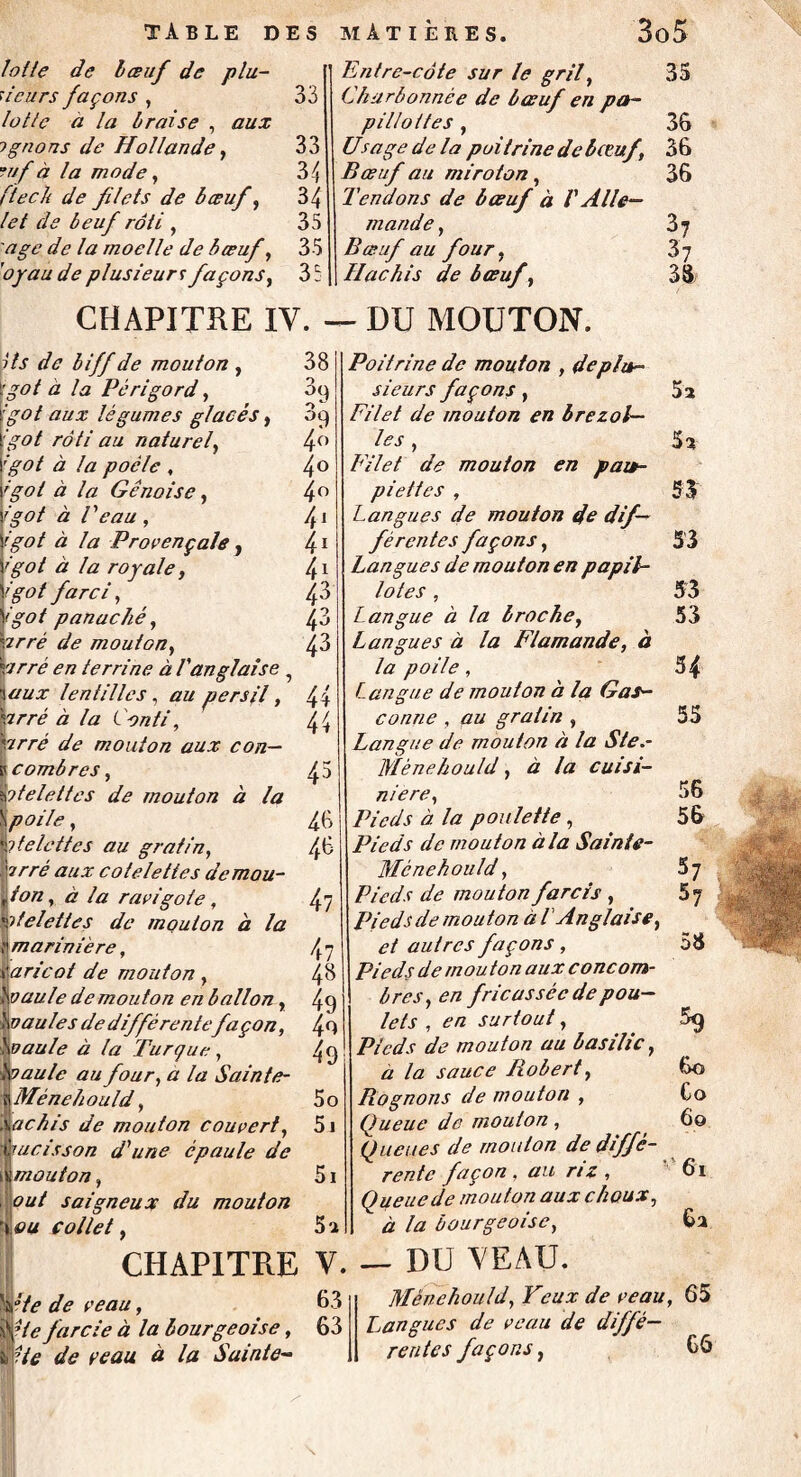 TABLE DES MATIÈRES. 3o5
lotte de bœuf de plu-
sieurs façons , 33
lotte à la braise , aux
ognons de Hollande, 33
euf à la mode, 34
fteck de filets de bœuf, 34
let de beuf rôti , 35
age de la moelle de bœuf, 35
oyau de plusieurs façons, 35
Entre-côte sur le gril, 35
Charbonnée de bœuf en pa-
pillottes, 36
Usage de la poitrine de bœuf, 36
Bœuf au miroton, 36
Tendons de bœuf à l'Alle-
mande, 37
Bœuf au four, 37
Hachis de bœuf, 38
CHAPITRE IV. — DU MOUTON.
its de biff de mouton , 38
got à la Périgord, 39
got aux légumes glacés, 39
got rôti au naturel, 40
igot à la poêle , 40
igot à la Génoise, 40
igot à l'eau, 41
igot à la Provençale, 41
igot à la royale, 41
igot farci, 43
igot panaché, 43
arré de mouton, 43
arré en terrine à l'anglaise ,
aux lentilles, au persil, 44
arré à la Conti, 44
arré de mouton aux con-
combres, 45
otelettes de mouton à la
poile, 46
otelettes au gratin, 46
arré aux cotelettes de mou-
ton, à la ravigote, 47
otelettes de mouton à la
marinière, 47
aricot de mouton, 48
paule de mouton en ballon, 49
paules de différente façon, 49
paule à la Turque, 49
paule au four, à la Sainte-
Ménehould, 5o
achis de mouton couvert, 51
aucisson d'une épaule de
mouton, 51
out saigneux du mouton
ou collet, 52
Poitrine de mouton , de plu-
sieurs façons, 52
Filet de mouton en brezol-
les, 52
Filet de mouton en pau-
piettes , 53
Langues de mouton de dif-
férentes façons, 53
Langues de mouton en papil-
lotes , 53
Langue à la broche, 53
Langues à la Flamande, à
la poile, 54
Langue de mouton à la Gas-
conne , au gratin , 55
Langue de mouton à la Ste.-
Ménehould, à la cuisi-
niere, 56
Pieds à la poulette, 56
Pieds de mouton à la Sainte-
Ménehould, 57
Pieds de mouton farcis, 57
Pieds de mouton à l'Anglaise,
et autres façons, 58
Pieds de mouton aux concom-
bres, en fricassée de pou-
lets , en surtout, 59
Pieds de mouton au basilic,
à la sauce Robert, 60
Rognons de mouton , 60
Queue de mouton, 60
Queues de mouton de diffé-
rente façon, au riz , 61
Queue de mouton aux choux,
à la bourgeoise, 62
CHAPITRE V. — DU VEAU.
ête de veau, 63
ête farcie à la bourgeoise, 63
ête de veau à la Sainte-
Ménehould, Yeux de veau, 65
Langues de veau de diffé-
rentes façons, 66